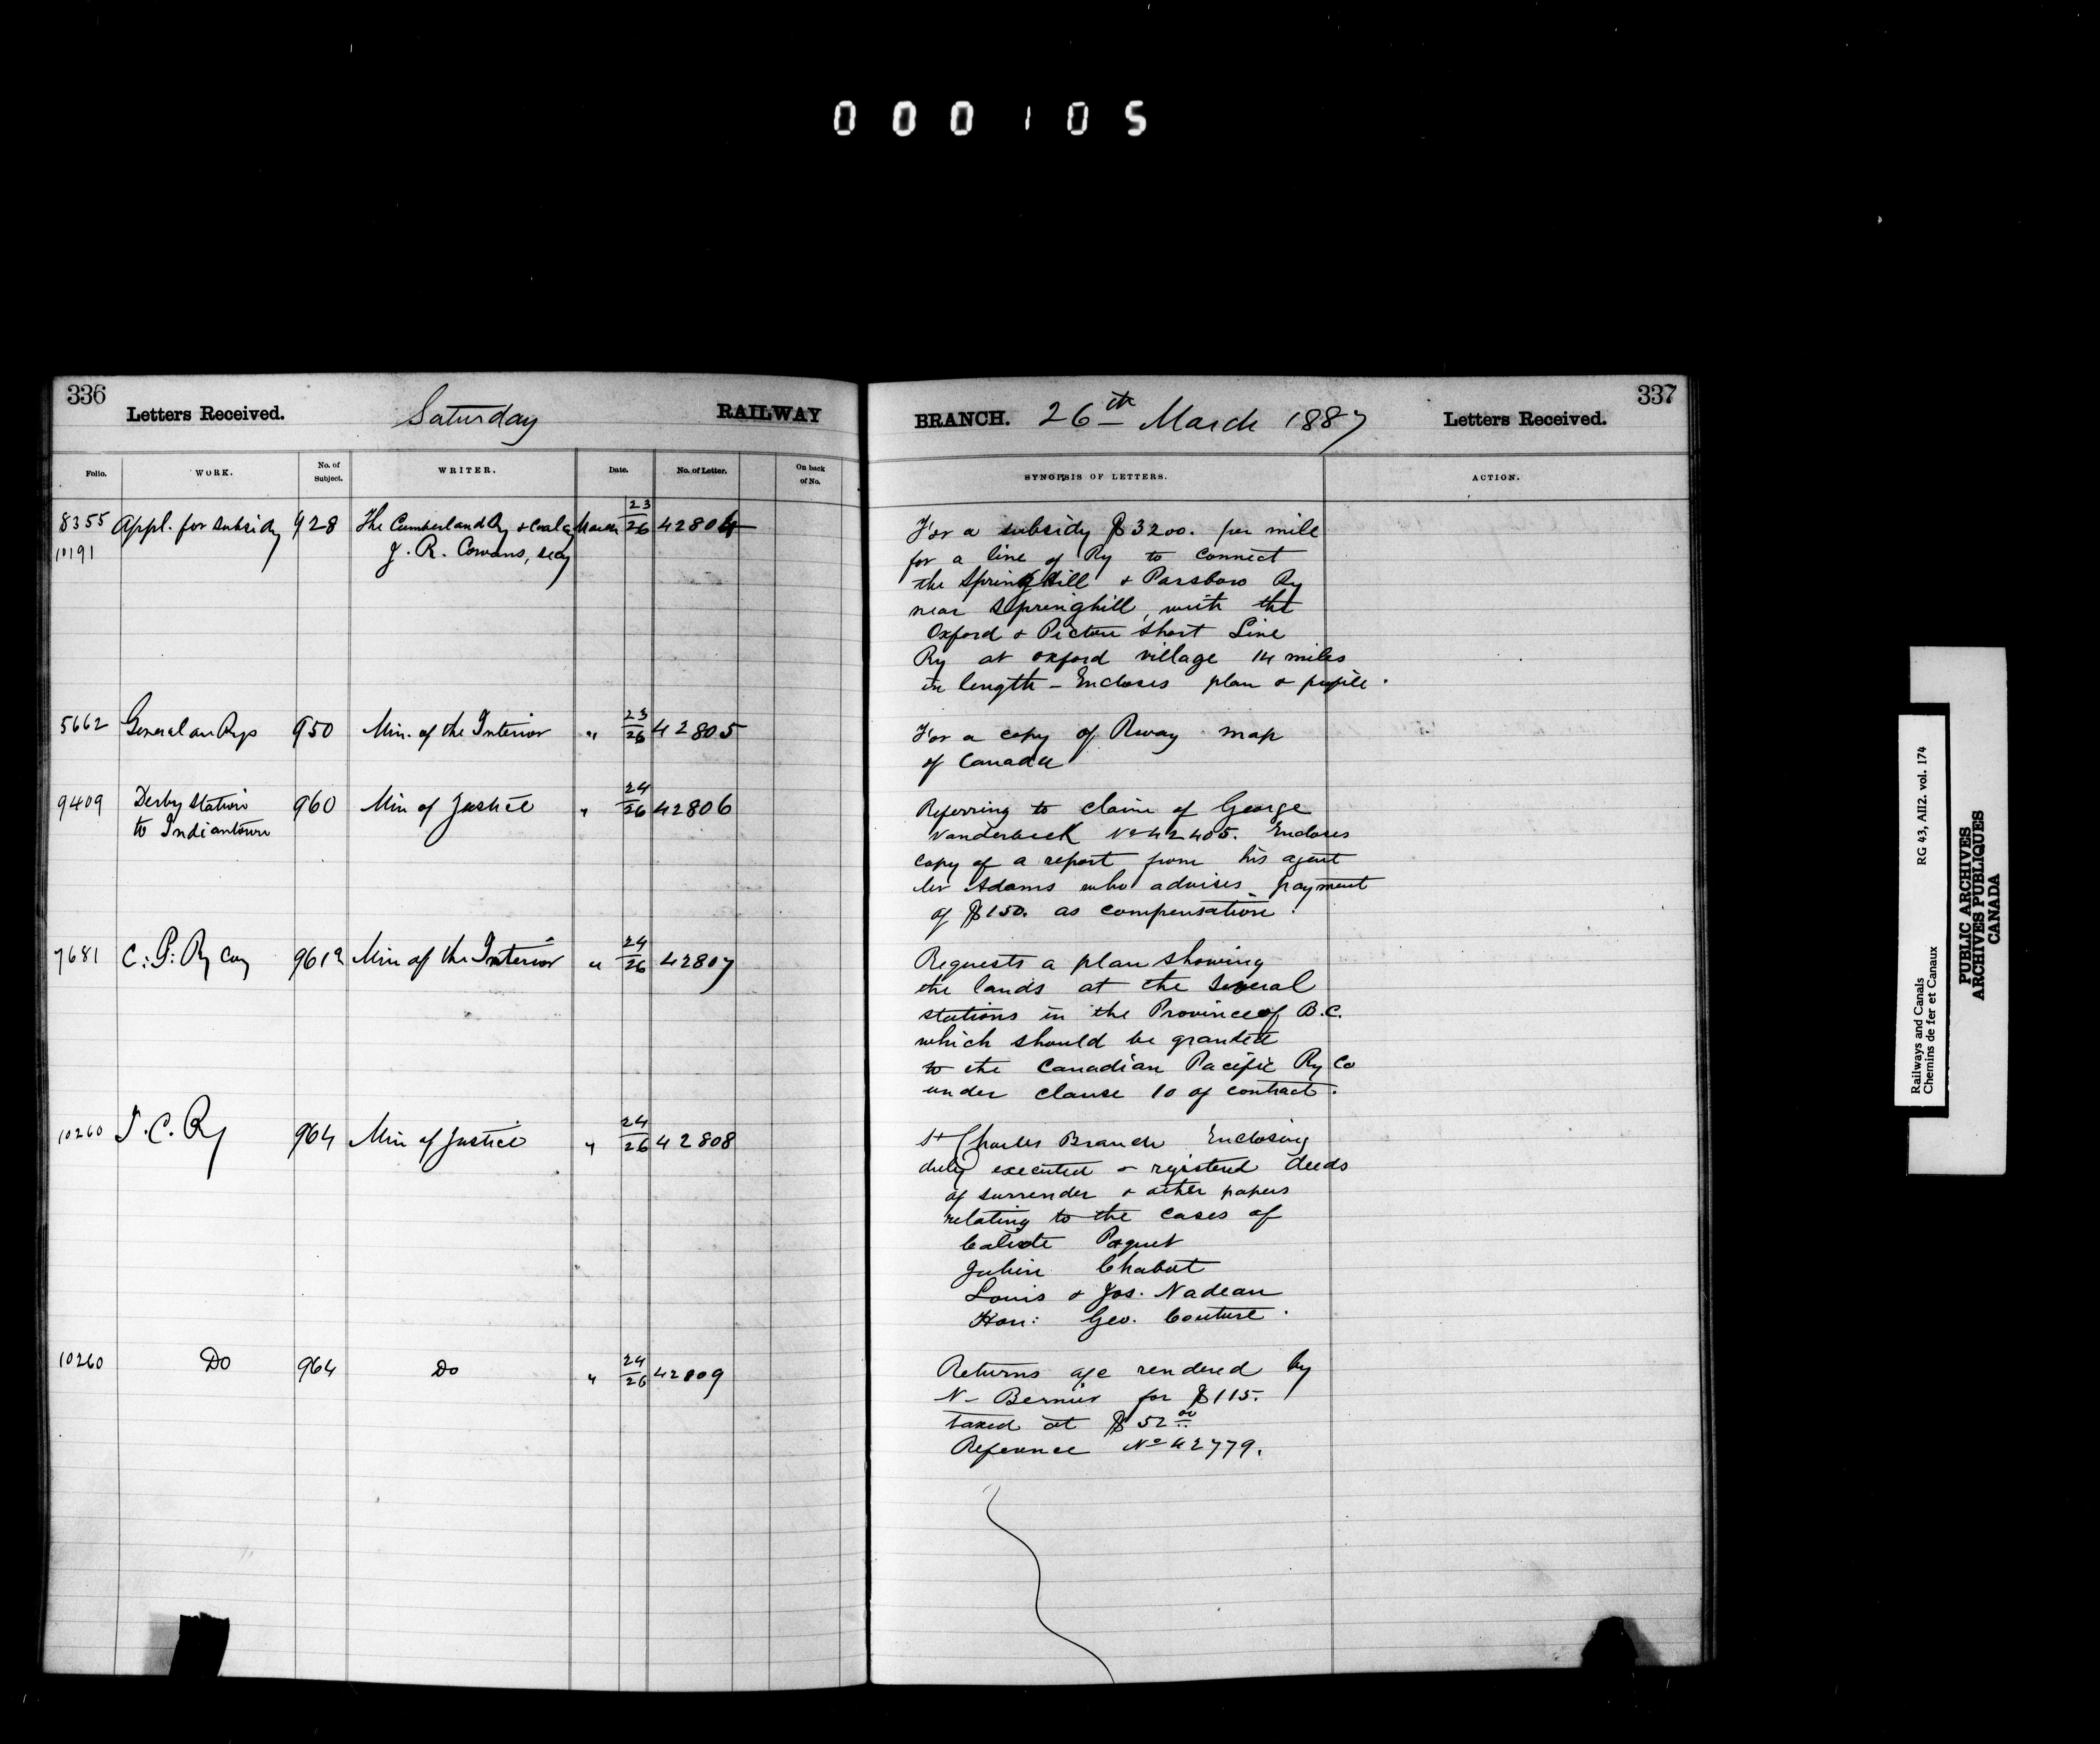 000105
336
Letters Received. Saturday RAILWAY
Folio. WORK. No. of Subject. WRITER. Date. No. of Letter. On back of No.
8355 Appl. for subsidy 928 The Cumberland Ry & Coal Cy March 23/26 42804
10191 J. R. Cowans, secy
5662 General an Rys 950 Min. of the Interior " 23/26 42805
9409 Derby Station 960 Min of Justice " 24/26 42806
to Indiantown
7681 C: P: Ry Coy 961a Min of the Interior " 24/26 42807
10260 I. C. Ry 964 Min of Justice " 24/26 42808
10260 Do 964 Do " 24/26 42809
337
BRANCH. 26th March 1887 Letters Received.
SYNOPSIS OF LETTERS. ACTION.
For a subsidy $3200. per mile
for a line of Ry to connect
the Springhill & Parsboro Ry
near Springhill, with the
Oxford & Pictou Short Line
Ry at oxford village 14 miles
in length - Encloses plan & profile.
For a copy of Rway map
of Canada
Referring to claim of George
Vanderbeck No 42405. Encloses
copy of a report from his agent
Mr Adams who advises payment
of $150. as compensation.
Requests a plan showing
the lands at the several
stations in the Province of B.C.
which should be granted
to the Canadian Pacific Ry Co
under clause 10 of contract.
St Charles Branch Enclosing
duly executed & registered deeds
of surrender & other papers
relating to the cases of
Calixte Paquet
Julien Chabot
Louis & Jos. Nadeau
Hon: Geo. Couture.
Returns a/c rendered by
N- Bernier for $115.
taxed at $52.00
Reference No 42779.
Railways and Canals RG 43, AII2. vol. 174
Chemins de fer et Canaux
PUBLIC ARCHIVES
ARCHIVES PUBLIQUES
CANADA